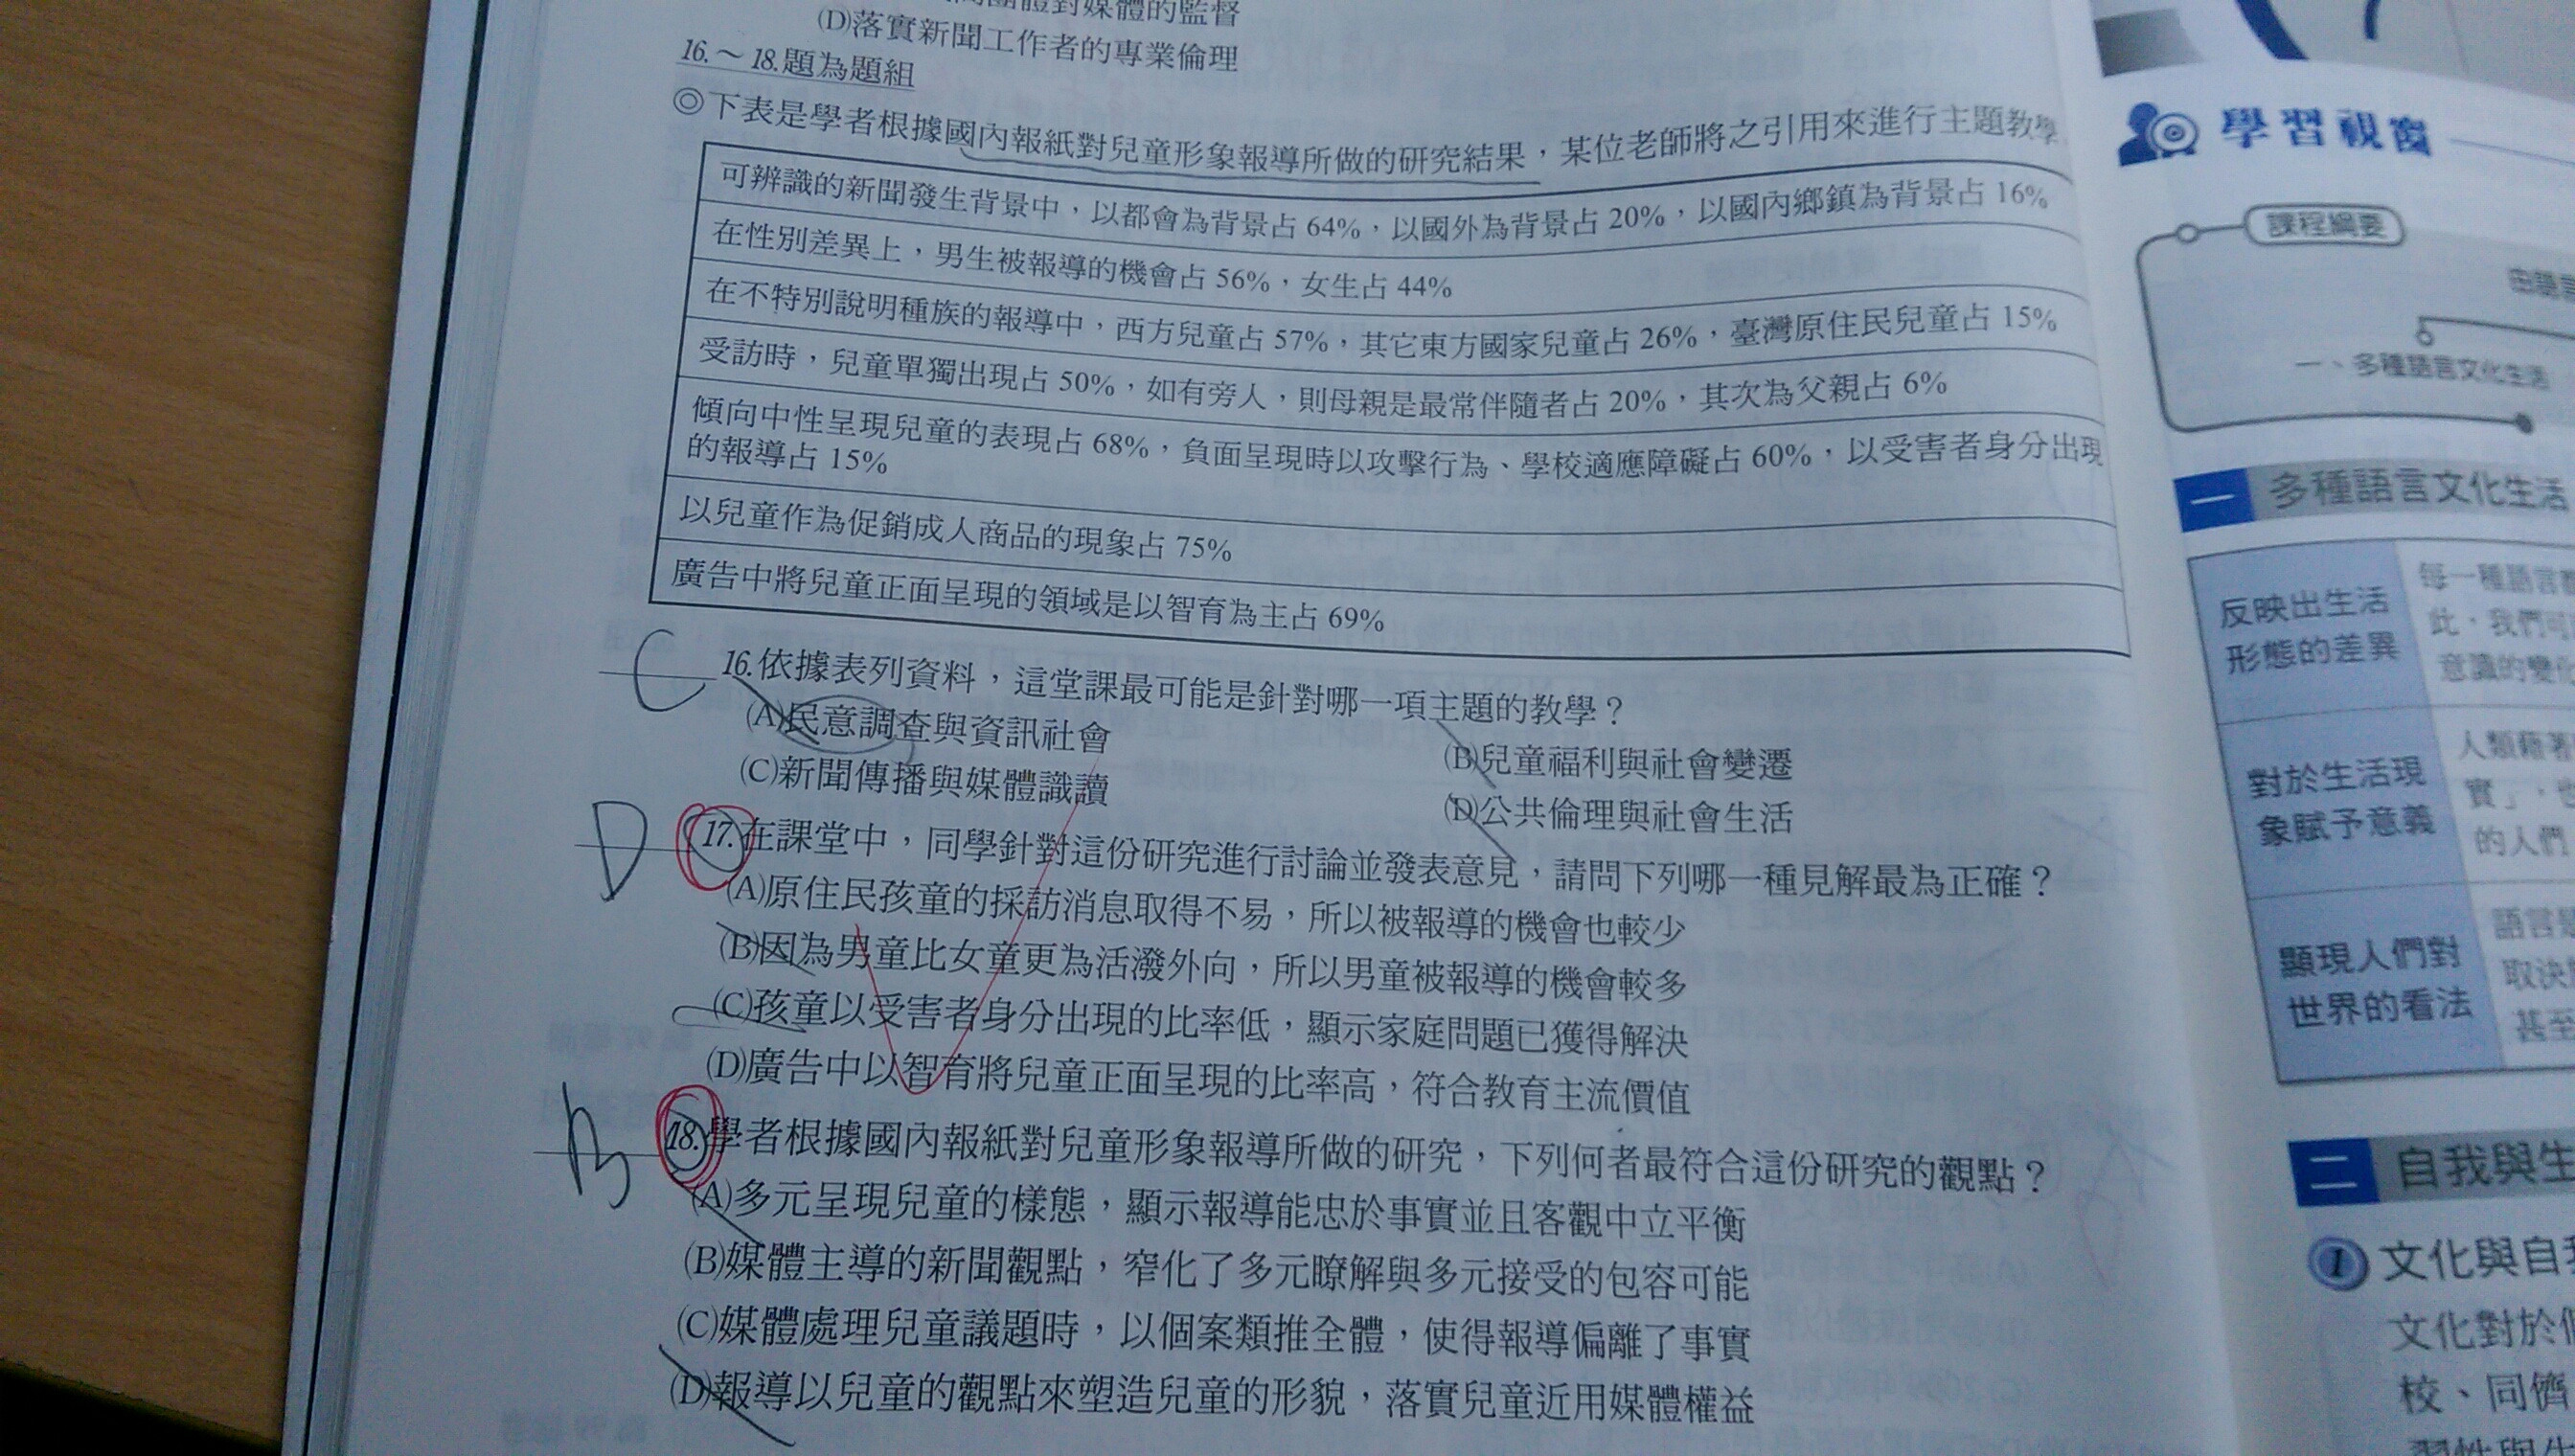 團體對媒體的監督
(D)落實新聞工作者的專業倫理
16.～18.題為題組
◎下表是學者根據國內報紙對兒童形象報導所做的研究結果，某位老師將之引用來進行主題教學
可辨識的新聞發生背景中，以都會為背景占 64%，以國外為背景占 20%，以國內鄉鎮為背景占 16%
在性別差異上，男生被報導的機會占 56%，女生占 44%
在不特別說明種族的報導中，西方兒童占 57%，其它東方國家兒童占 26%，臺灣原住民兒童占 15%
受訪時，兒童單獨出現占 50%，如有旁人，則母親是最常伴隨者占 20%，其次為父親占 6%
傾向中性呈現兒童的表現占 68%，負面呈現時以攻擊行為、學校適應障礙占 60%，以受害者身分出現
的報導占 15%
以兒童作為促銷成人商品的現象占 75%
廣告中將兒童正面呈現的領域是以智育為主占 69%
C 16.依據表列資料，這堂課最可能是針對哪一項主題的教學？
(A)民意調查與資訊社會 (B)兒童福利與社會變遷
(C)新聞傳播與媒體識讀 (D)公共倫理與社會生活
D 17.在課堂中，同學針對這份研究進行討論並發表意見，請問下列哪一種見解最為正確？
(A)原住民孩童的採訪消息取得不易，所以被報導的機會也較少
(B)因為男童比女童更為活潑外向，所以男童被報導的機會較多
(C)孩童以受害者身分出現的比率低，顯示家庭問題已獲得解決
(D)廣告中以智育將兒童正面呈現的比率高，符合教育主流價值
B 18.學者根據國內報紙對兒童形象報導所做的研究，下列何者最符合這份研究的觀點？
(A)多元呈現兒童的樣態，顯示報導能忠於事實並且客觀中立平衡
(B)媒體主導的新聞觀點，窄化了多元瞭解與多元接受的包容可能
(C)媒體處理兒童議題時，以個案類推全體，使得報導偏離了事實
(D)報導以兒童的觀點來塑造兒童的形貌，落實兒童近用媒體權益
學習視窗
課程綱要
一、多種語言文化生活
一 多種語言文化生活
反映出生活
形態的差異
每一種語言
此，我們可
意識的變化
對於生活現
象賦予意義
人類藉著
實」，也
的人們
顯現人們對
世界的看法
語言是
取決
甚至
二 自我與生
1 文化與自我
文化對於個
校、同儕